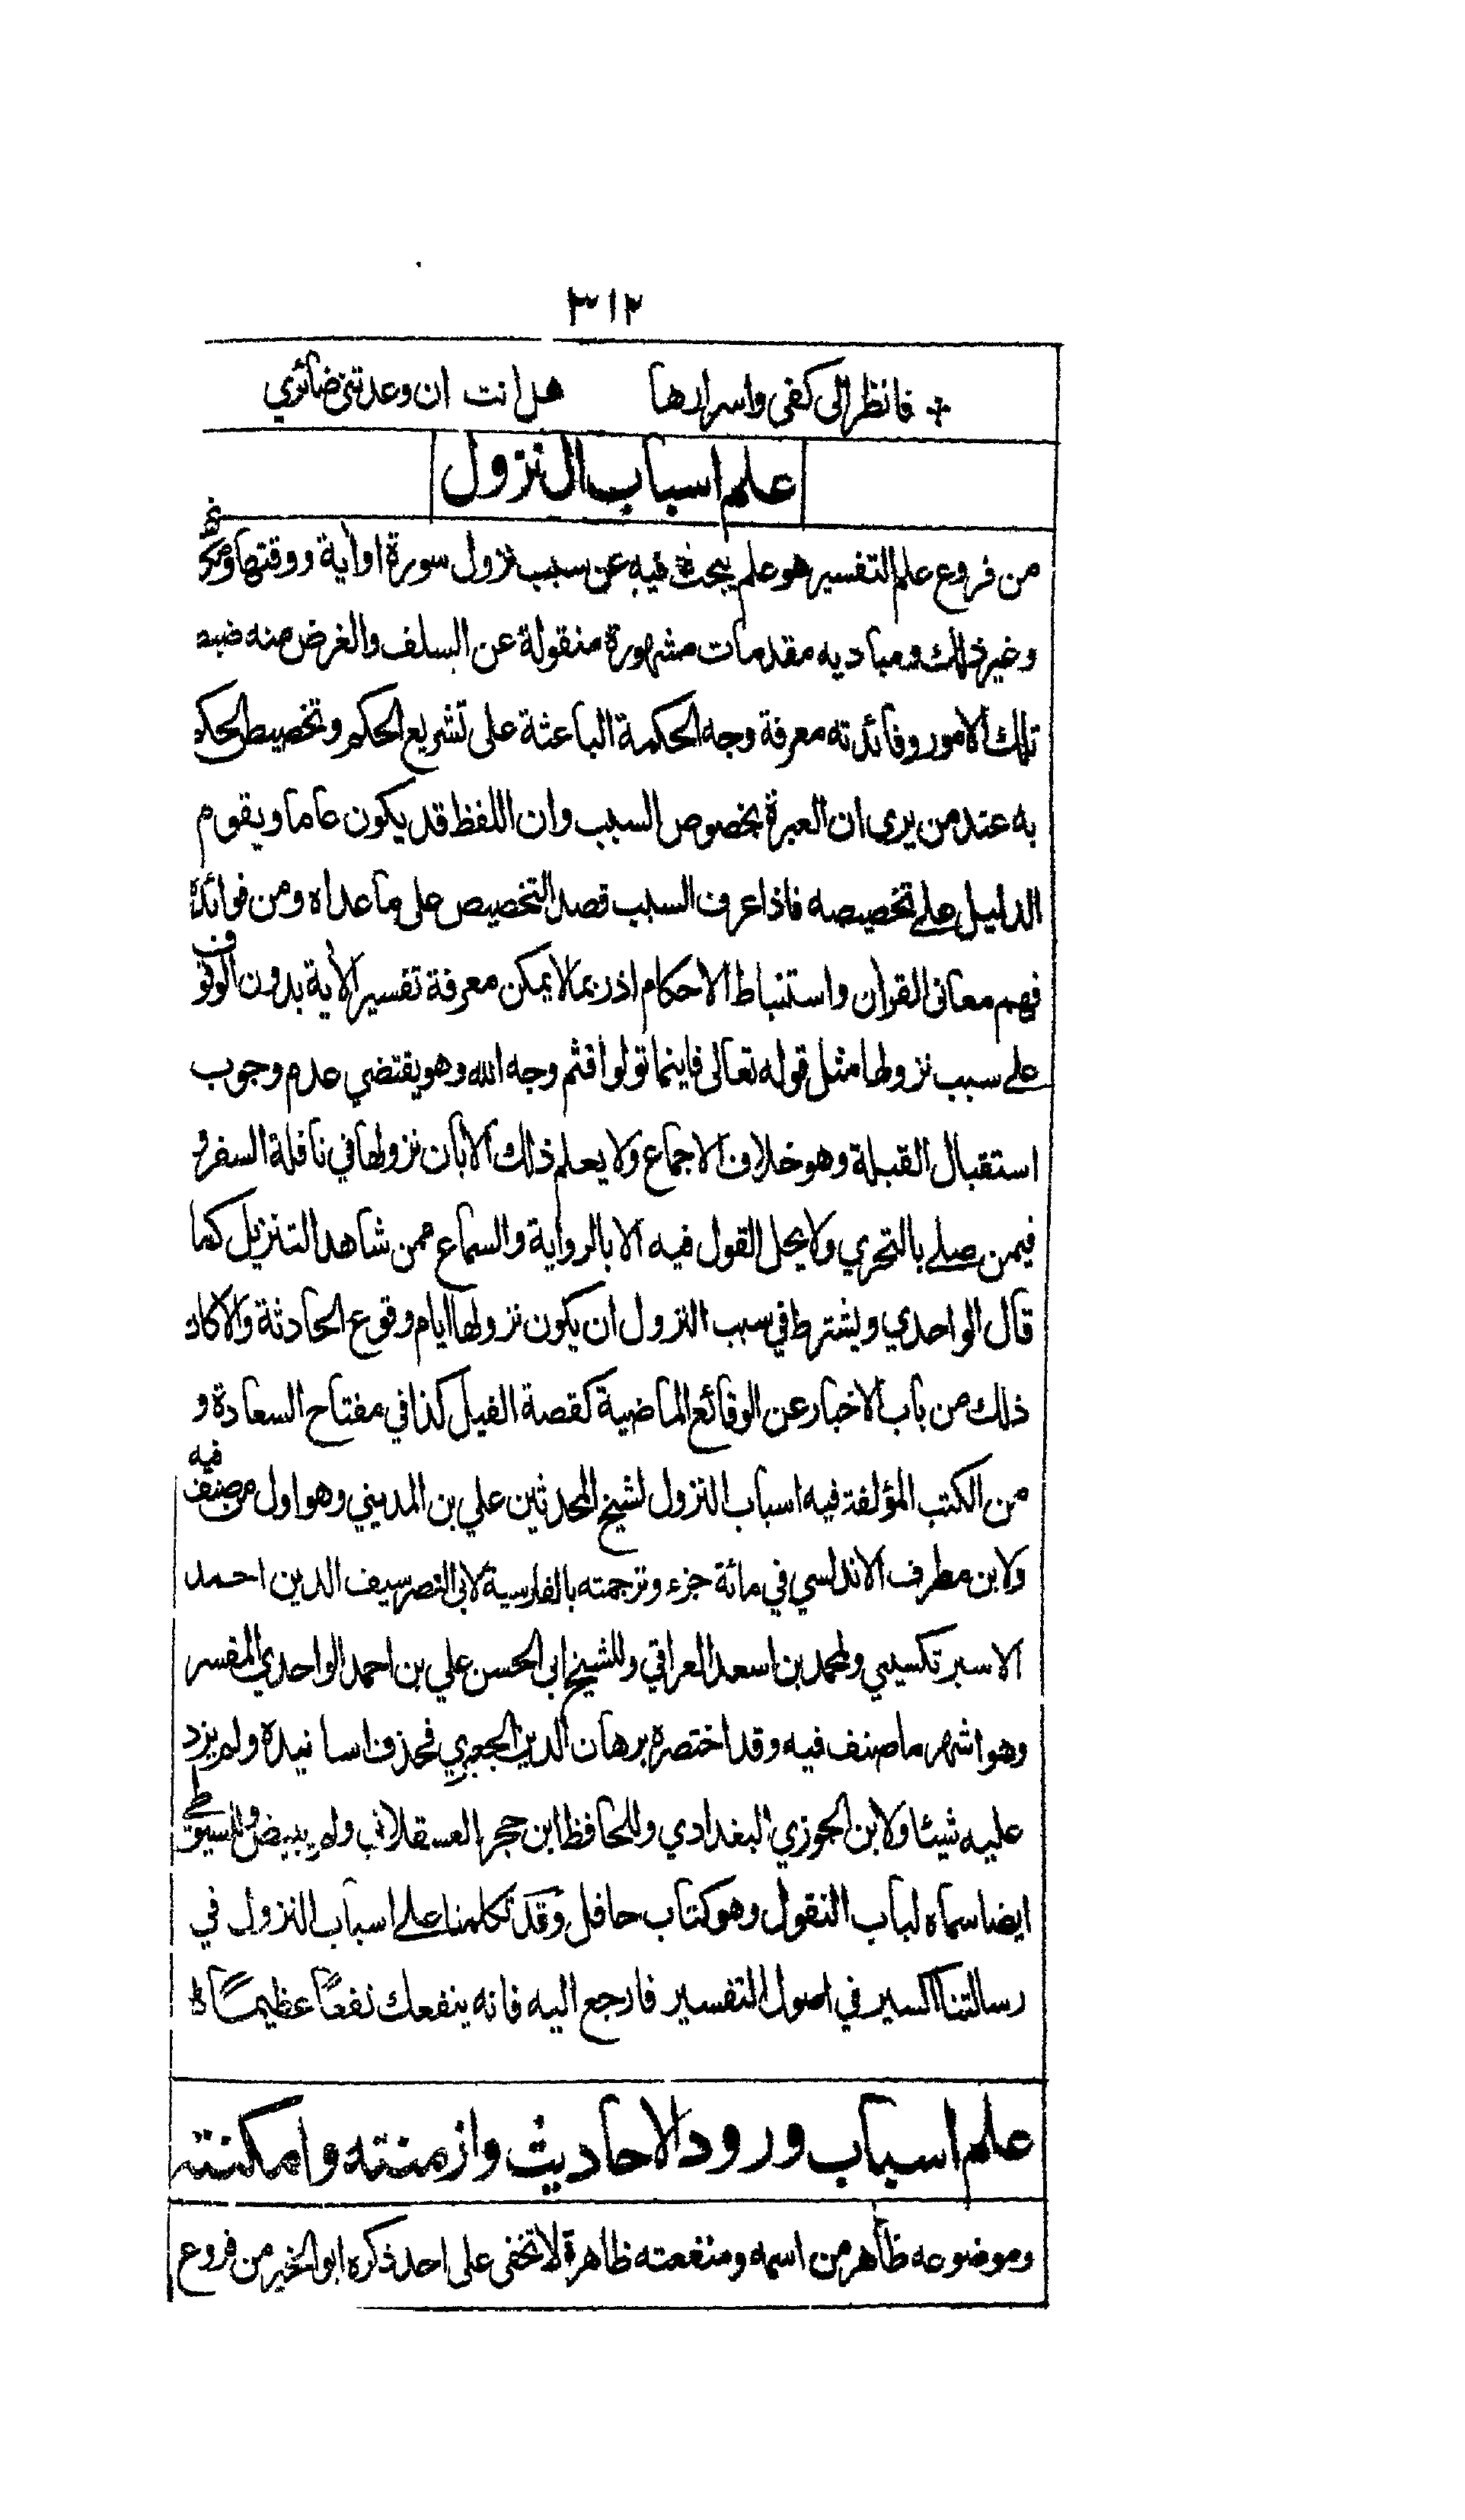 ٣١٢
فانظر الى كفى واسرارها هل انت ان وعدتني ضائري
علم اسباب النزول
من فروع علم التفسير هو علم يبحث فيه عن سبب نزول سورة او أية ووقتها ومكا
وغير ذلك ومباديه مقدمات مشهورة منقولة عن السلف والغرض منه ضبط
تلك الامور وفائدته معرفة وجه الحكمة الباعثة على تشريع الحكم وتخصيص الحكم
به عند من يرى ان العبرة بخصوص السبب وان اللفظ قد يكون عاما ويقوم
الدليل على تخصيصه فاذا عرف السبب قصد التخصيص على ما عداه ومن فوائده
فهم معانى القرأن واستنباط الاحكام اذ ربما لا يمكن معرفة تفسير الأية بدون الوقوف
على سبب نزولها مثل قوله تعالى فاينما تولوا فثم وجه الله وهو يقتضي عدم وجوب
استقبال القبلة وهو خلاف الاجماع ولا يعلم ذلك الا بان نزولها في نافلة السفر و
فيمن صلى بالتحري ولا يحل القول فيه الا بالرواية والسماع ممن شاهد التنزيل كما
قال الواحدي ويشترط في سبب النزول ان يكون نزولها ايام وقوع الحادثة والا كان
ذلك من باب الاخبار عن الوقائع الماضية كقصة الفيل كذا في مفتاح السعادة و
من الكتب المؤلفة فيه اسباب النزول لشيخ المحدثين علي بن المديني وهو اول من صنف فيه
ولابن مطرف الاندلسي في مائة جزء وترجمته بالفارسية لابى النصر سيف الدين احمد
الاسبرتكسيبي ولمحمد بن اسعد العراقي وللشيخ ابى الحسن علي بن احمد الواحدي المفسر
وهو اشهر ما صنف فيه وقد اختصره برهان الدين الجعبري فحذف اسانيده ولم يزد
عليه شيئا ولابن الجوزي البغدادي وللحافظ ابن حجر العسقلانى ولم يبيض وللسيوطي
ايضا سماه لباب النقول وهو كتاب حافل وقد تكلمنا على اسباب النزول في
رسالتنا اكسير في اصول التفسير فارجع اليه فانه ينفعك نفعًا عظيمًا
علم اسباب ورود الاحاديث وازمنته وامكنته
وموضوعه ظاهر من اسمه ومنفعته ظاهرة لا تخفى على احد ذكره ابو الخير من فروع